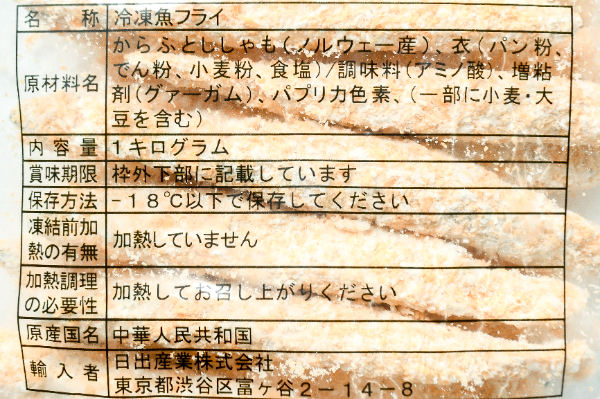 名称 冷凍魚フライ
原材料名 からふとししゃも(ノルウェー産)、衣(パン粉、
でん粉、小麦粉、食塩)/調味料(アミノ酸)、増粘
剤(グァーガム)、パプリカ色素、(一部に小麦・大
豆を含む)
内容量 1キログラム
賞味期限 枠外下部に記載しています
保存方法 －18℃以下で保存してください
凍結前加
熱の有無 加熱していません
加熱調理
の必要性 加熱してお召し上がりください
原産国名 中華人民共和国
輸入者 日出産業株式会社
東京都渋谷区富ヶ谷2－14－8